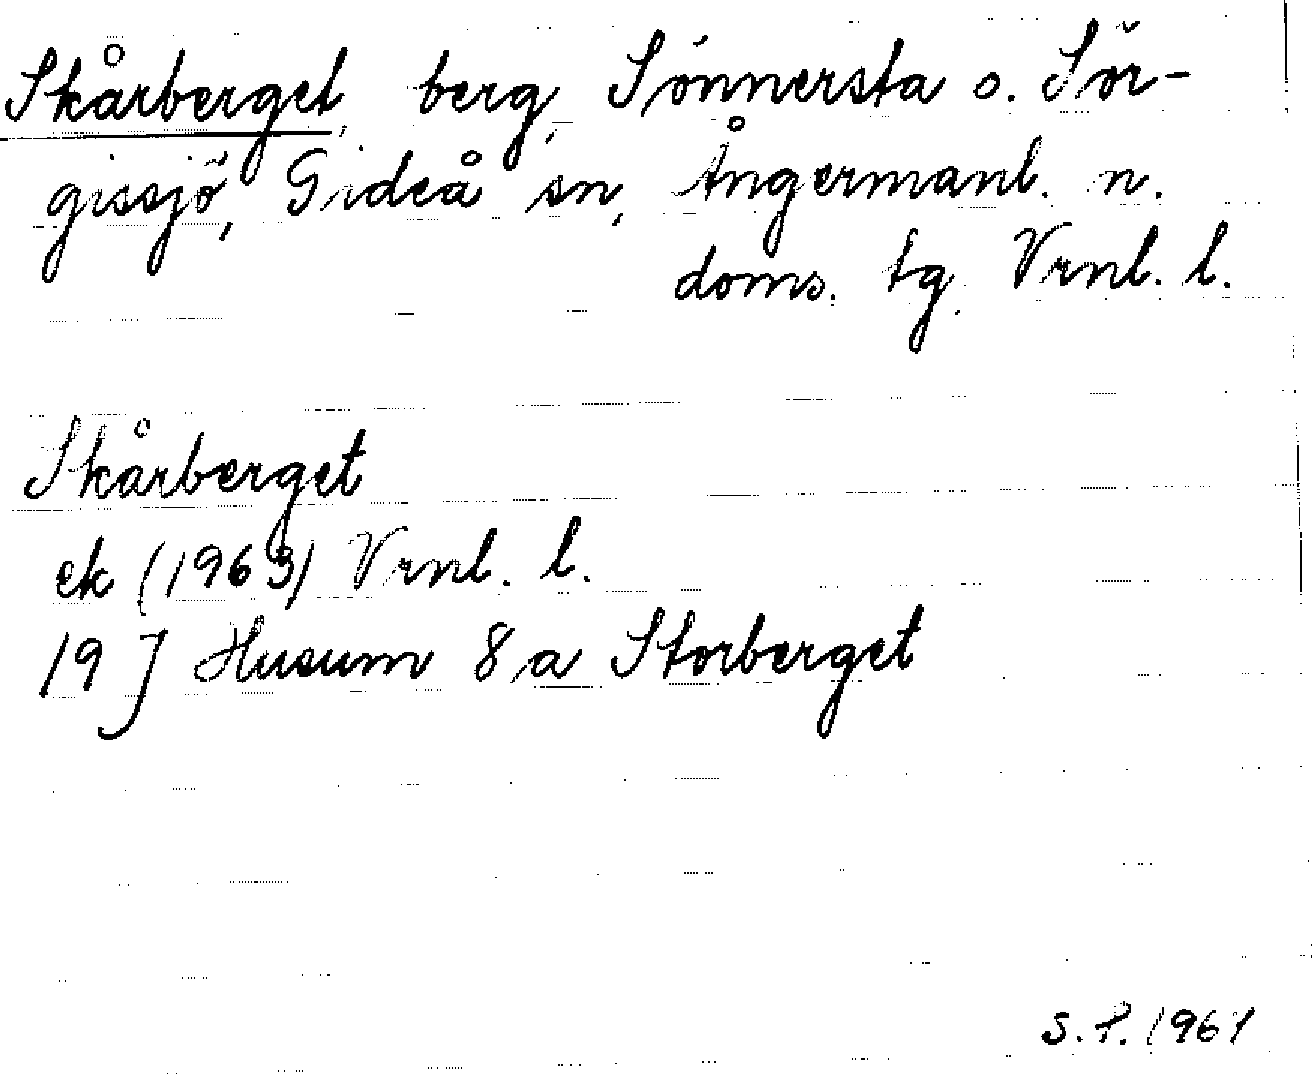 Skårberget, berg, Sönnersta o. Sör-
gissjö, Gideå sn, Ångermanl. n.
doms. tg. Vrnl. l.
Skårberget
ek (1963) Vrnl. l.
19 J Husum 8 a Storberget
S.P. 1967